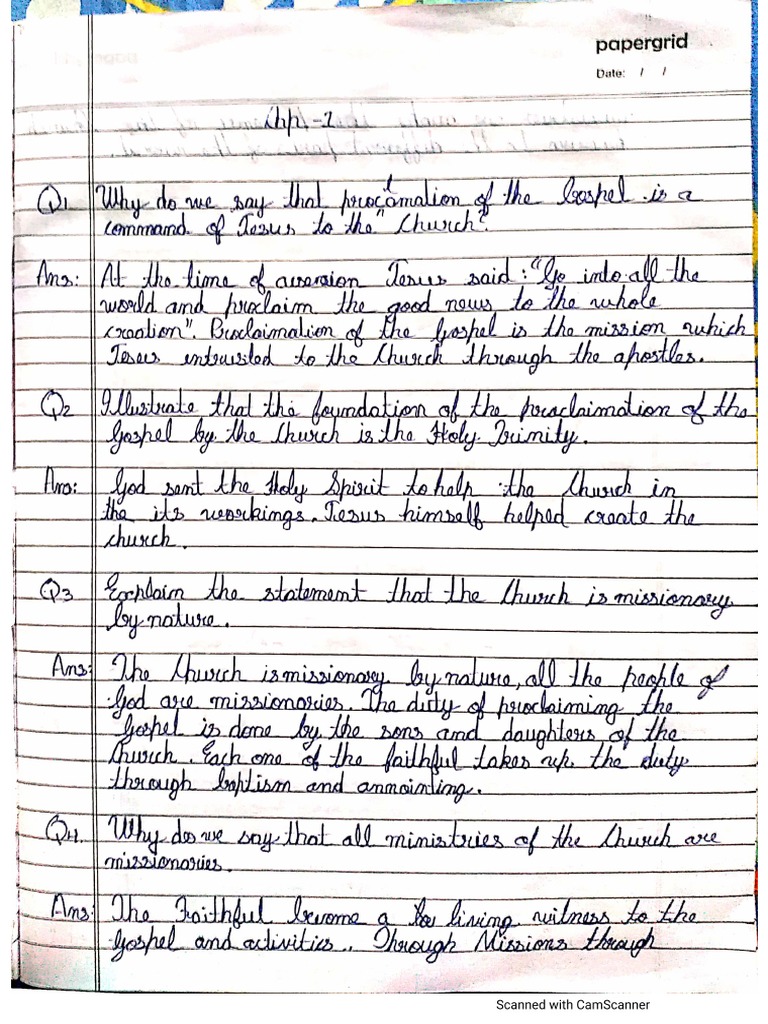 papergrid
Date: / /
Chp-1
Q1 Why do we say that proclamation of the Gospel is a
command of Jesus to the "Church".
Ans: At the time of Jesus said: "Go into all the
world and proclaim the good news to the whole
creation". Proclaimation of the Gospel is the mission which
Jesus entrusted to the Church through the apostles.
Q2 Illustrate that the foundation of the proclaimation of the
Gospel by the Church is the Holy Trinity.
Ans: God sent the Holy Spirit to help the Church in
the its workings. Jesus himself helped create the
church.
Q3 Explain the statement that the Church is missionary
by nature.
Ans: The Church is missionary by nature, all the people of
God are missionaries. The duty of proclaiming the
Gospel is done by the sons and daughters of the
Church. Each one of the faithful takes up the duty
through baptism and annointing.
Q4. Why do we say that all ministries of the Church are
missionaries.
Ans: The Faithful become a living witness to the
Gospel and activities.. Through Missions through
Scanned with CamScanner